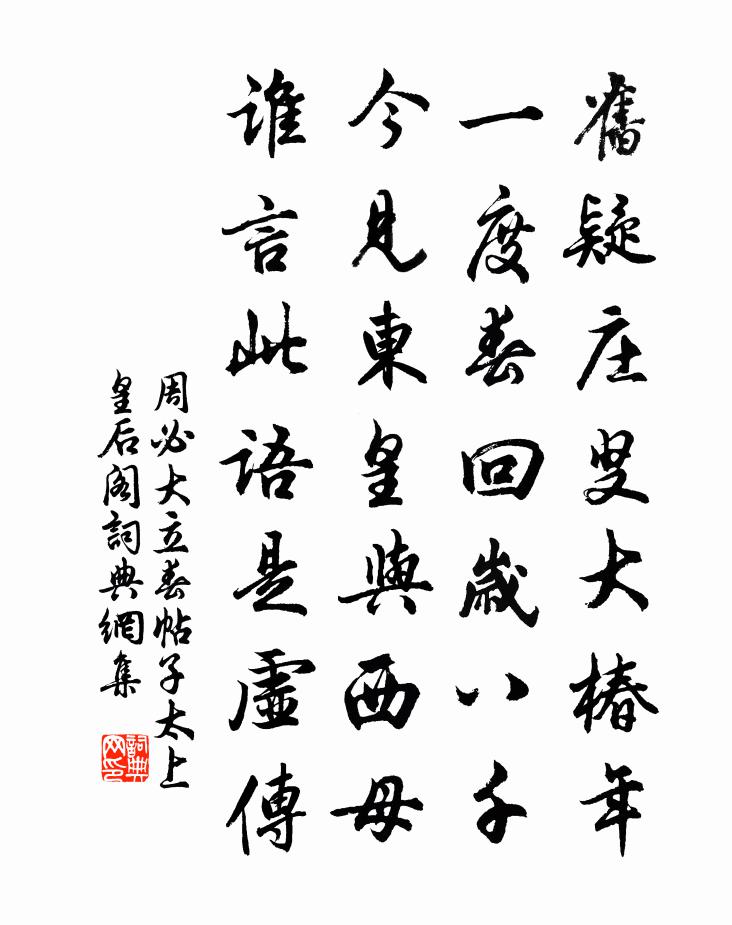 舊疑庄叟大椿年
一度春回歲八千
今見東皇與西母
誰言此語是虛傳
周必大立春帖子太上
皇后阁詞典網集
詞典
网印